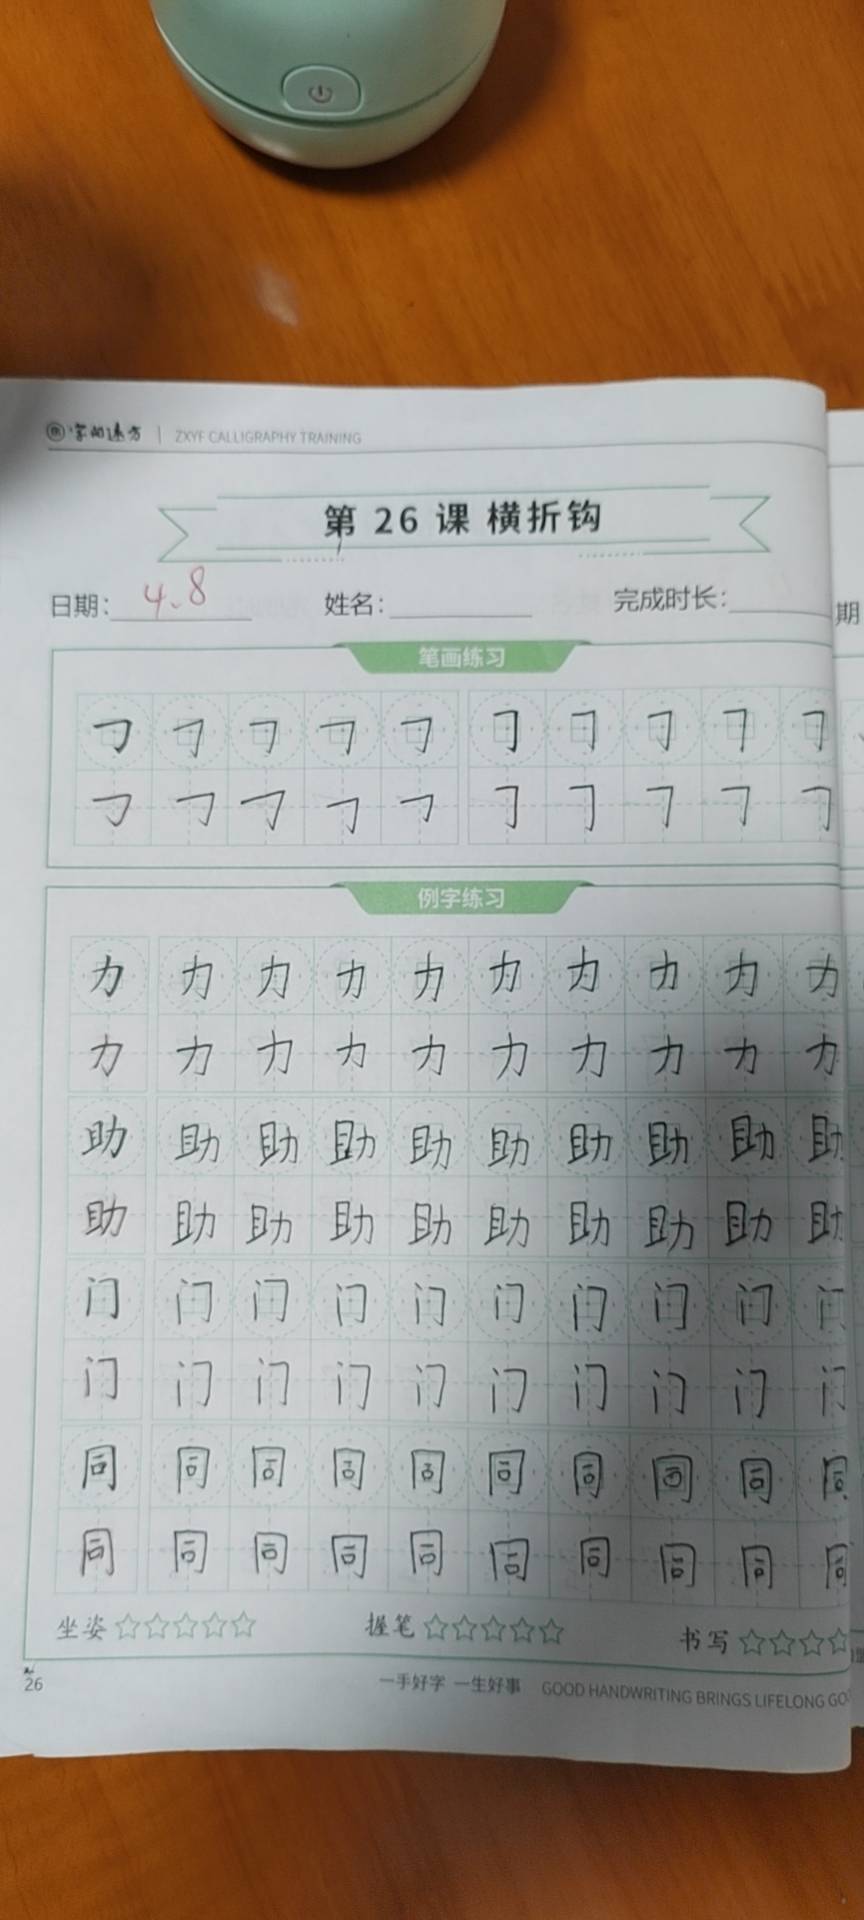 字的远方 | ZXYF CALLIGRAPHY TRAINING
第 26 课 横折钩
日期: 4.8 姓名: 完成时长: 期
笔画练习
㇆ ㇆ ㇆ ㇆ ㇆ ㇆ ㇆ ㇆ ㇆ ㇆
㇆ ㇆ ㇆ ㇆ ㇆ ㇆ ㇆ ㇆ ㇆ ㇆
例字练习
力 力 力 力 力 力 力 力 力 力
力 力 力 力 力 力 力 力 力 力
助 助 助 助 助 助 助 助 助 助
助 助 助 助 助 助 助 助 助 助
门 门 门 门 门 门 门 门 门 门
门 门 门 门 门 门 门 门 门 门
同 同 同 同 同 同 同 同 同 同
同 同 同 同 同 同 同 同 同 同
坐姿 ☆☆☆☆☆ 握笔 ☆☆☆☆☆ 书写 ☆☆☆☆
26 一手好字 一生好事 GOOD HANDWRITING BRINGS LIFELONG GO